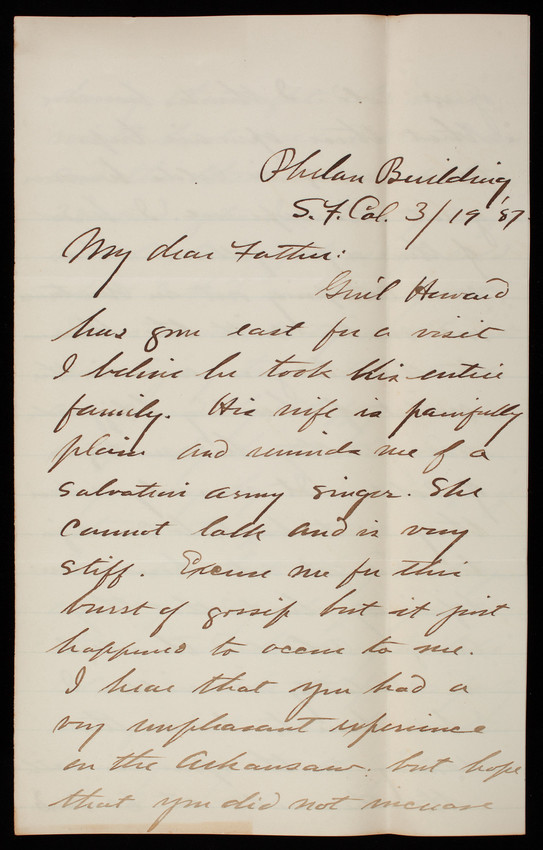 Phelan Building
S.F. Cal. 3/19 '87.
My dear Father:
Gen'l Howard
has gone east for a visit
I believe he took his entire
family. His wife is painfully
plain and reminds me of a
Salvation Army Singer. She
cannot talk and is very
stiff. Excuse me for this
burst of gossip but it just
happened to occur to me.
I hear that you had a
very unpleasant experience
on the Arkansaw. but hope
that you did not increase